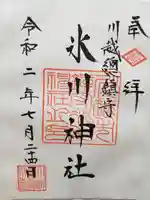 奉拝
川越総鎮守
氷川神社
令和二年七月二十四日